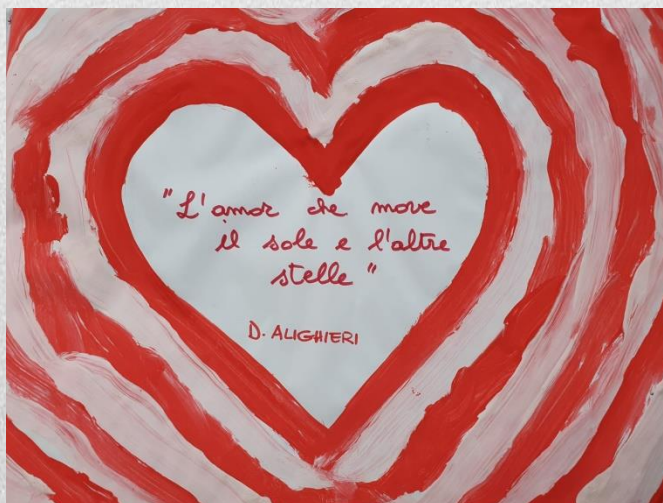 "L'amor che move
il sole e l'altre
stelle"
D. ALIGHIERI